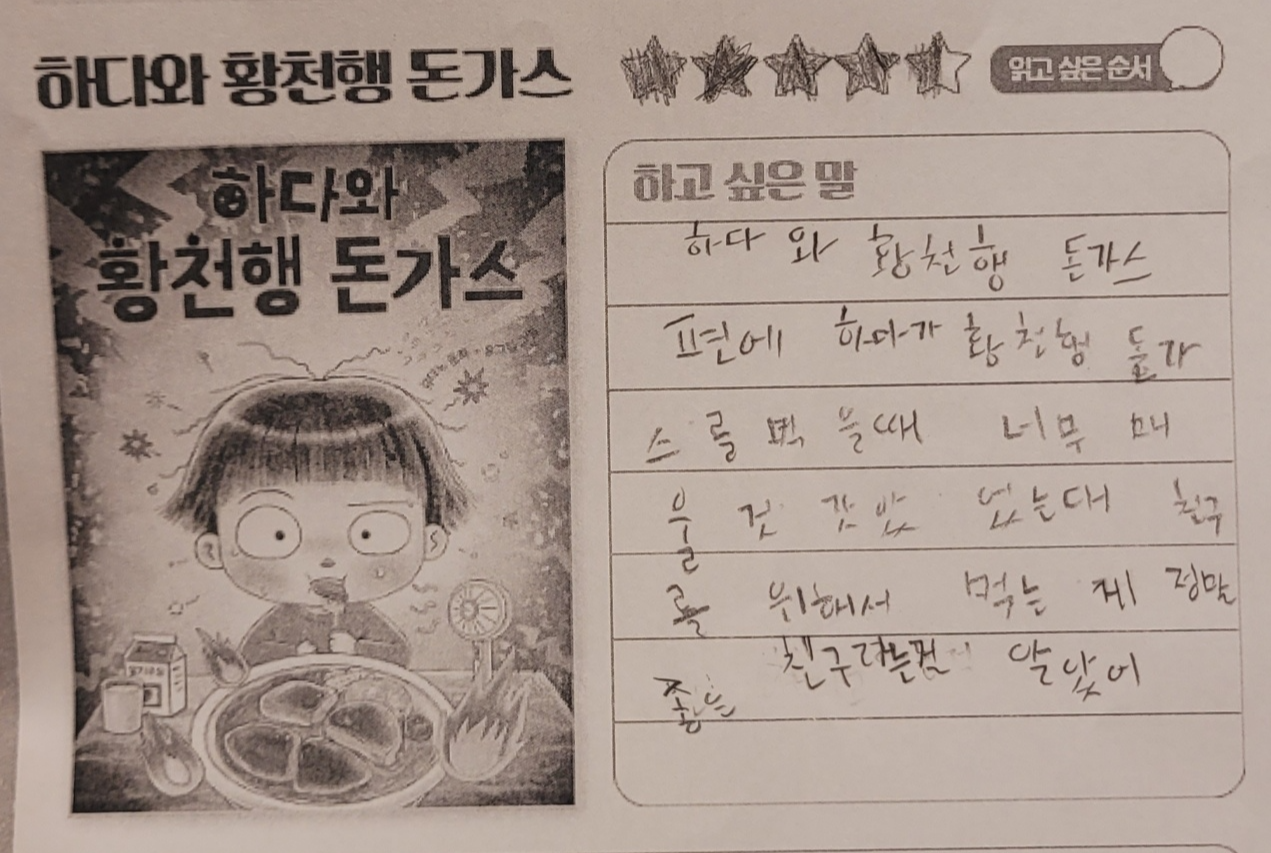 하다와 황천행 돈가스
읽고 싶은 순서
하다와
황천행 돈가스
하고 싶은 말
하다 와 황천행 돈가스
편에 하다가 황천행 돈가
스 를 먹 을때 너무 매
울 것 같았 었는대 친구
를 위해서 먹는 게 정말
좋은 친구라는걸 알았어